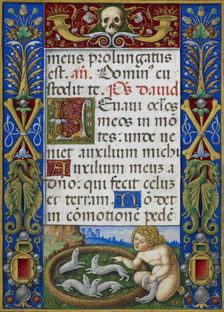 meus prolongatus
est. añ. Dominꝰ cu
stodit te. Ps dauid
Leuaui oc̃los
meos in mo
tes: unde ue
niet auxilium michi
Auxilium meuz a
dño: qui fecit celuz
et terram. Nõ
det cõmotionẽ pedẽ